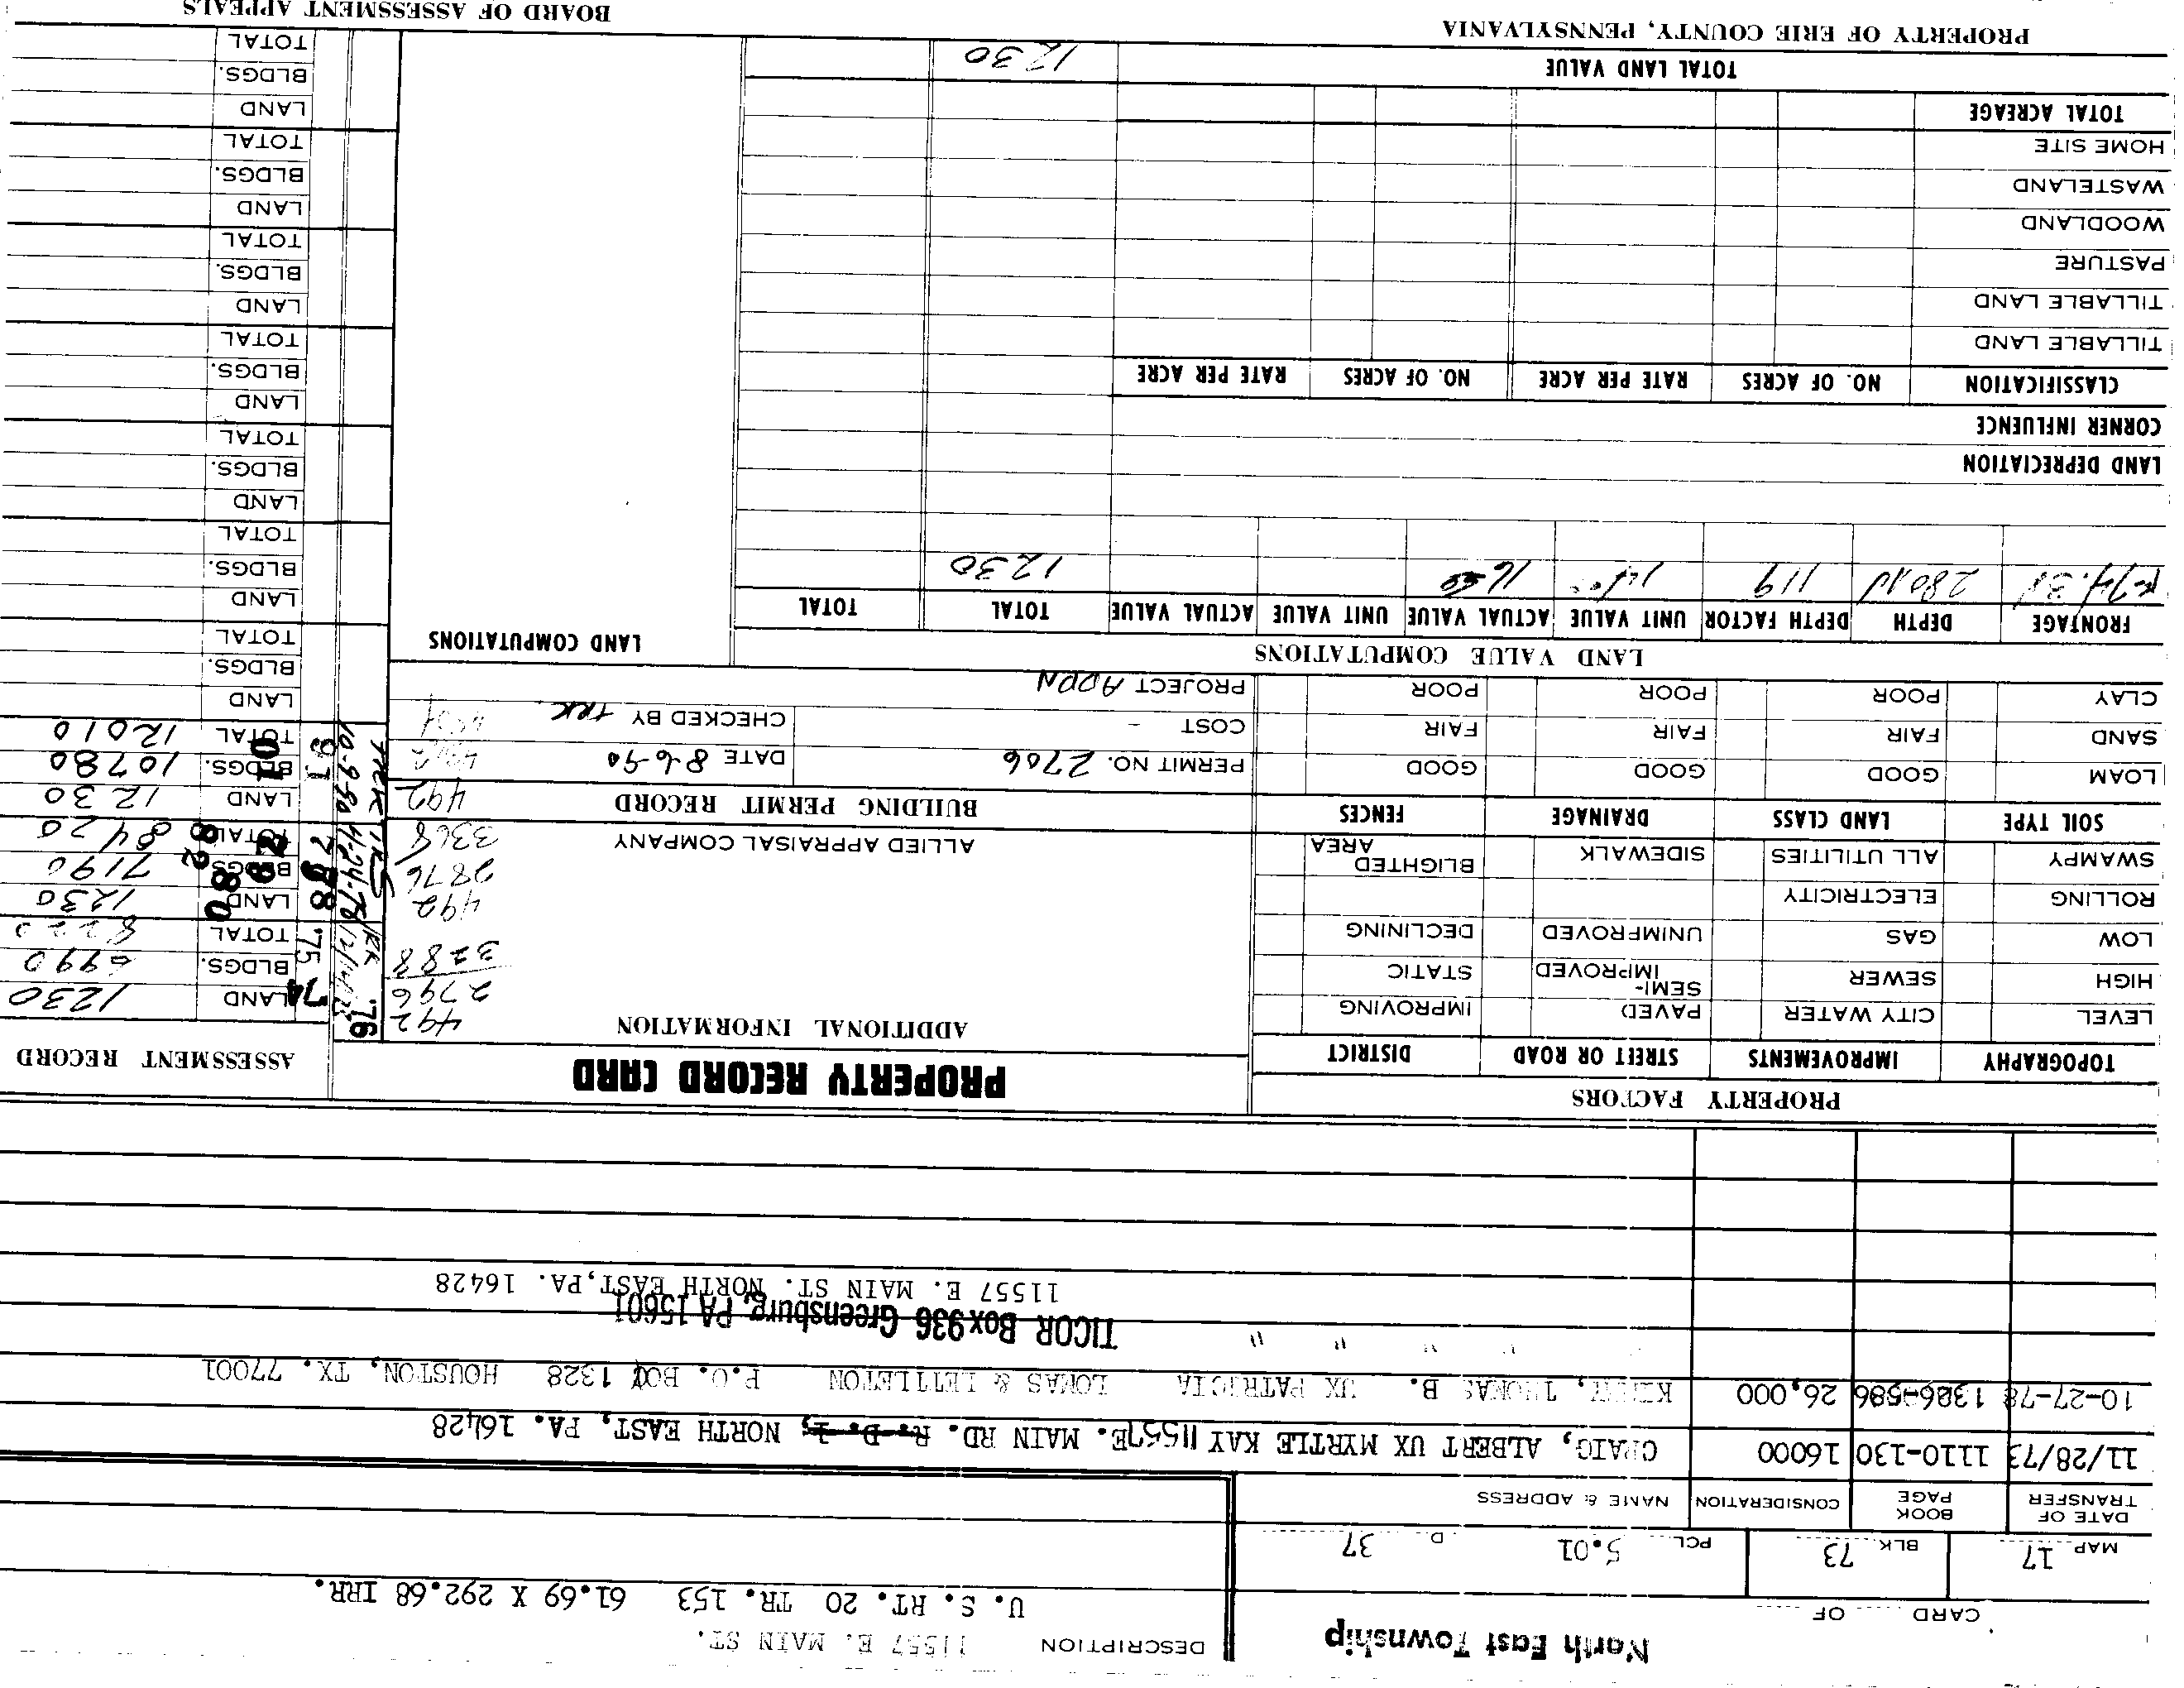 North East Township
DESCRIPTION 11557 E. MAIN ST.
CARD OF
U. S. RT. 20 TR. 153 61.69 X 292.68 IRR.
MAP 17 BLK. 73 PCL. 5.01 D 37
DATE OF TRANSFER BOOK PAGE CONSIDERATION NAME & ADDRESS
11/28/73 1110-130 16000 CRAIG, ALBERT UX MYRTLE KAY 11557 E. MAIN RD. R. D. 1, NORTH EAST, PA. 16428
10-27-78 1386-586 26,000 THOMAS B. UX PATRICIA LOMAS & LETTLETON P.O. BOX 1328 HOUSTON, TX. 77001
" " " " TICOR Box 936 Greensburg, PA 15601
11557 E. MAIN ST. NORTH EAST, PA. 16428
PROPERTY FACTORS
TOPOGRAPHY IMPROVEMENTS STREET OR ROAD DISTRICT
LEVEL CITY WATER PAVED IMPROVING
HIGH SEWER SEMI-IMPROVED STATIC
LOW GAS UNIMPROVED DECLINING
ROLLING ELECTRICITY
SWAMPY ALL UTILITIES SIDEWALK BLIGHTED AREA
SOIL TYPE LAND CLASS DRAINAGE FENCES
LOAM GOOD GOOD GOOD
SAND FAIR FAIR FAIR
CLAY POOR POOR POOR
PROPERTY RECORD CARD
ADDITIONAL INFORMATION
492
2796
3288
492
2876
3368
ALLIED APPRAISAL COMPANY
492
BUILDING PERMIT RECORD
PERMIT NO. 2706 DATE 8-6-90
COST - CHECKED BY TRK.
PROJECT ADDN
ASSESSMENT RECORD
'74 '75 '76
LAND 1230
BLDGS. 6990
TOTAL 8220
78 80 82
LAND 1230
BLDGS. 7190
TOTAL 8420
91
LAND 1230
BLDGS. 10780
TOTAL 12010
10-9-90
4-24-78
LAND
BLDGS.
TOTAL
LAND
BLDGS.
TOTAL
LAND
BLDGS.
TOTAL
LAND
BLDGS.
TOTAL
LAND
BLDGS.
TOTAL
LAND
BLDGS.
TOTAL
LAND
BLDGS.
TOTAL
LAND VALUE COMPUTATIONS
LAND COMPUTATIONS
FRONTAGE DEPTH DEPTH FACTOR UNIT VALUE ACTUAL VALUE UNIT VALUE ACTUAL VALUE TOTAL TOTAL
119 14.00 1230
LAND DEPRECIATION
CORNER INFLUENCE
CLASSIFICATION NO. OF ACRES RATE PER ACRE NO. OF ACRES RATE PER ACRE
TILLABLE LAND
TILLABLE LAND
PASTURE
WOODLAND
WASTELAND
HOME SITE
TOTAL ACREAGE
TOTAL LAND VALUE 1230
PROPERTY OF ERIE COUNTY, PENNSYLVANIA BOARD OF ASSESSMENT APPEALS